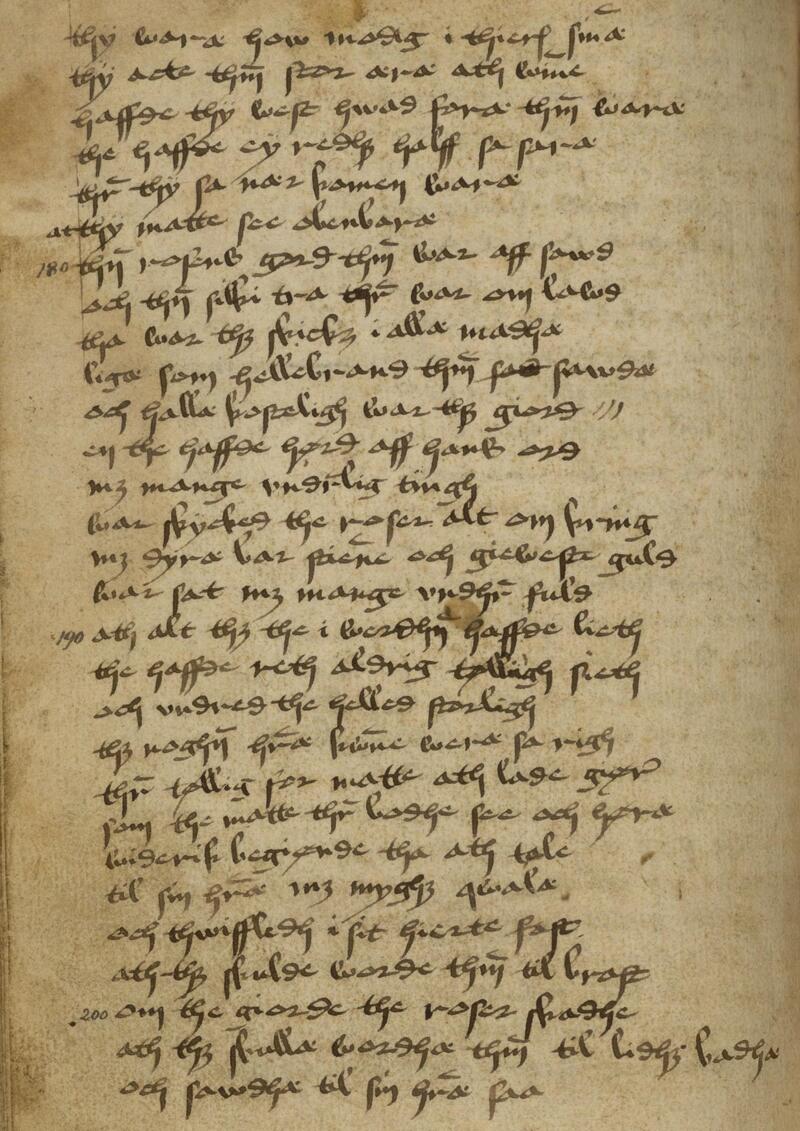 thy waræ how modig i thieræ sinæ
thy acte thm̄ stor æræ ath win̄e
haffde thy west hwad foræ thm̄ waræ
the haffde ey redhꝫ halff sa saræ
thr̄ thy sa nær komen waræ
at thy matte see obenbaræ
180 thn̄ rosens gord thm̄ war aff sawd
och thn̄ silki tra thr̄ war om lawd
tha war thꝫ skickꝫ i allæ madhæ
ligæ som hellebrand thm̄ sawdæ
och hallæ kosteligh war thꝫ giord
en the haffde hørd aff hans ord
mꝫ mange vndr̄lig tingh
war skycked the roser alt om kring
mꝫ dyræ bar stien̄e och gieweste guld
war sat mꝫ mange vndhr̄ fuld
190 ath alt thꝫ the i werdhn̄ haffde lieth
the haffde reth aldrig tølligh sieth
och vndred the helled storligh
thꝫ noghn̄ hr̄æ kwn̄e weræ sa righ
thr̄ tøllig for matte ath lade giør
som the matte thr̄ bodhe see och høræ
widerik begiønde tha ath tale
til sin hr̄æ mꝫ myghꝫ qwalæ
och thwiffledh i sit hierte fast
ath thꝫ skulde worde thm̄ til brast
200 om the giorde the roser skadhe
ath thꝫ skullæ wordhæ thm̄ til lidhꝫ badhæ
och sawdhæ til sin hr̄æ saa